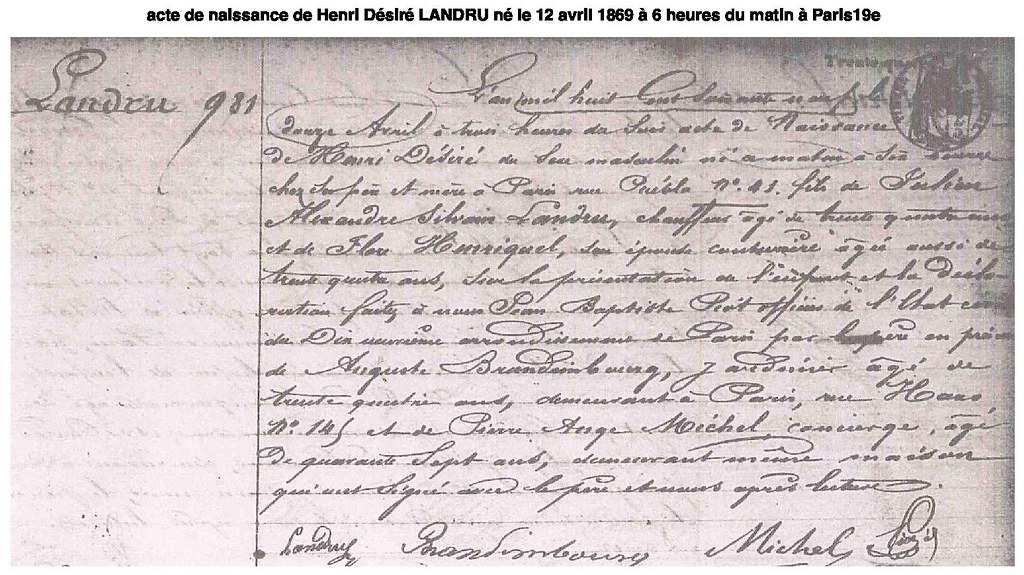 acte de naissance de Henri Désiré LANDRU né le 12 avril 1869 à 6 heures du matin à Paris19e
Landru 981
L'an mil huit cent soixante neuf le
douze Avril à trois heures du soir acte de Naissance
de Henri Désiré du sexe masculin né ce matin à six heures
chez ses père et mère à Paris rue Puebla N°. 41. fils de Julien
Alexandre Silvain Landru, chauffeur âgé de trente quatre ans
et de Flore Henriquel, son épouse couturière âgée aussi de
trente quatre ans, sur la présentation de l'enfant et la décla
ration faites à nous Jean Baptiste officier de l'Etat
du Dix neuvième arrondissement de Paris par le père en
de Auguste Brandimbourg, Jardinier âgé de
trente quatre ans, demeurant à Paris, rue
N°. 145 et de Pierre Ange Michel, concierge, âgé
de quarante sept ans, demeurant même maison
qui ont signé avec le père et nous après lecture.
Landru Brandimbourg Michel